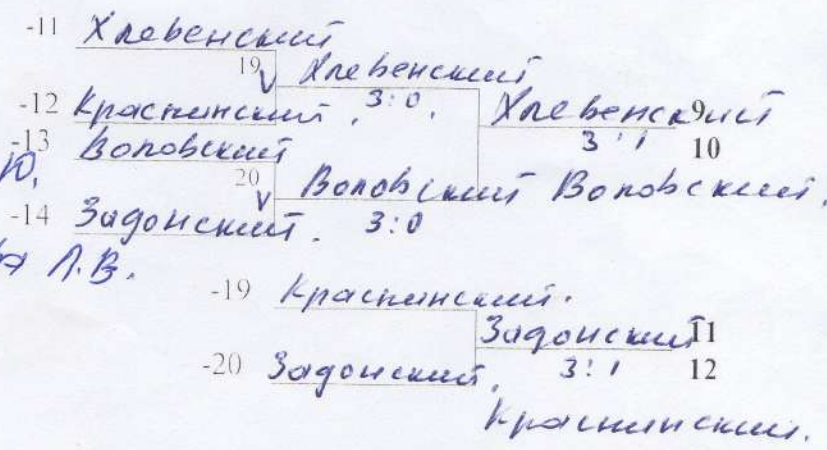 -11 Хлевенский
19 V Хлевенский
3:0.
-12 Краснинский.
Хлевенский 9
3:1 10
-13 Воловский
Ю,
20 V Воловский
3:0
Воловский.
-14 Задонский.
Л.В.
-19 Краснинский.
Задонский 11
3:1 12
-20 Задонский.
Краснинский.